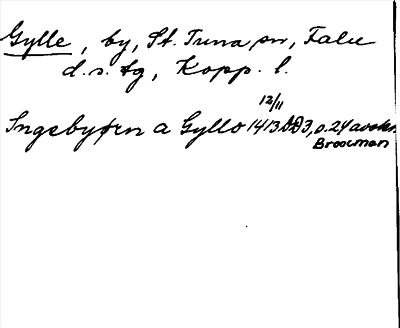 Gylle, by, St. Tuna sn, Falu
d.s. tg, Kopp. l.
12/11
Ingebyørn a Gyllo 1413 DD3, s. 24 avskr.
Broocman